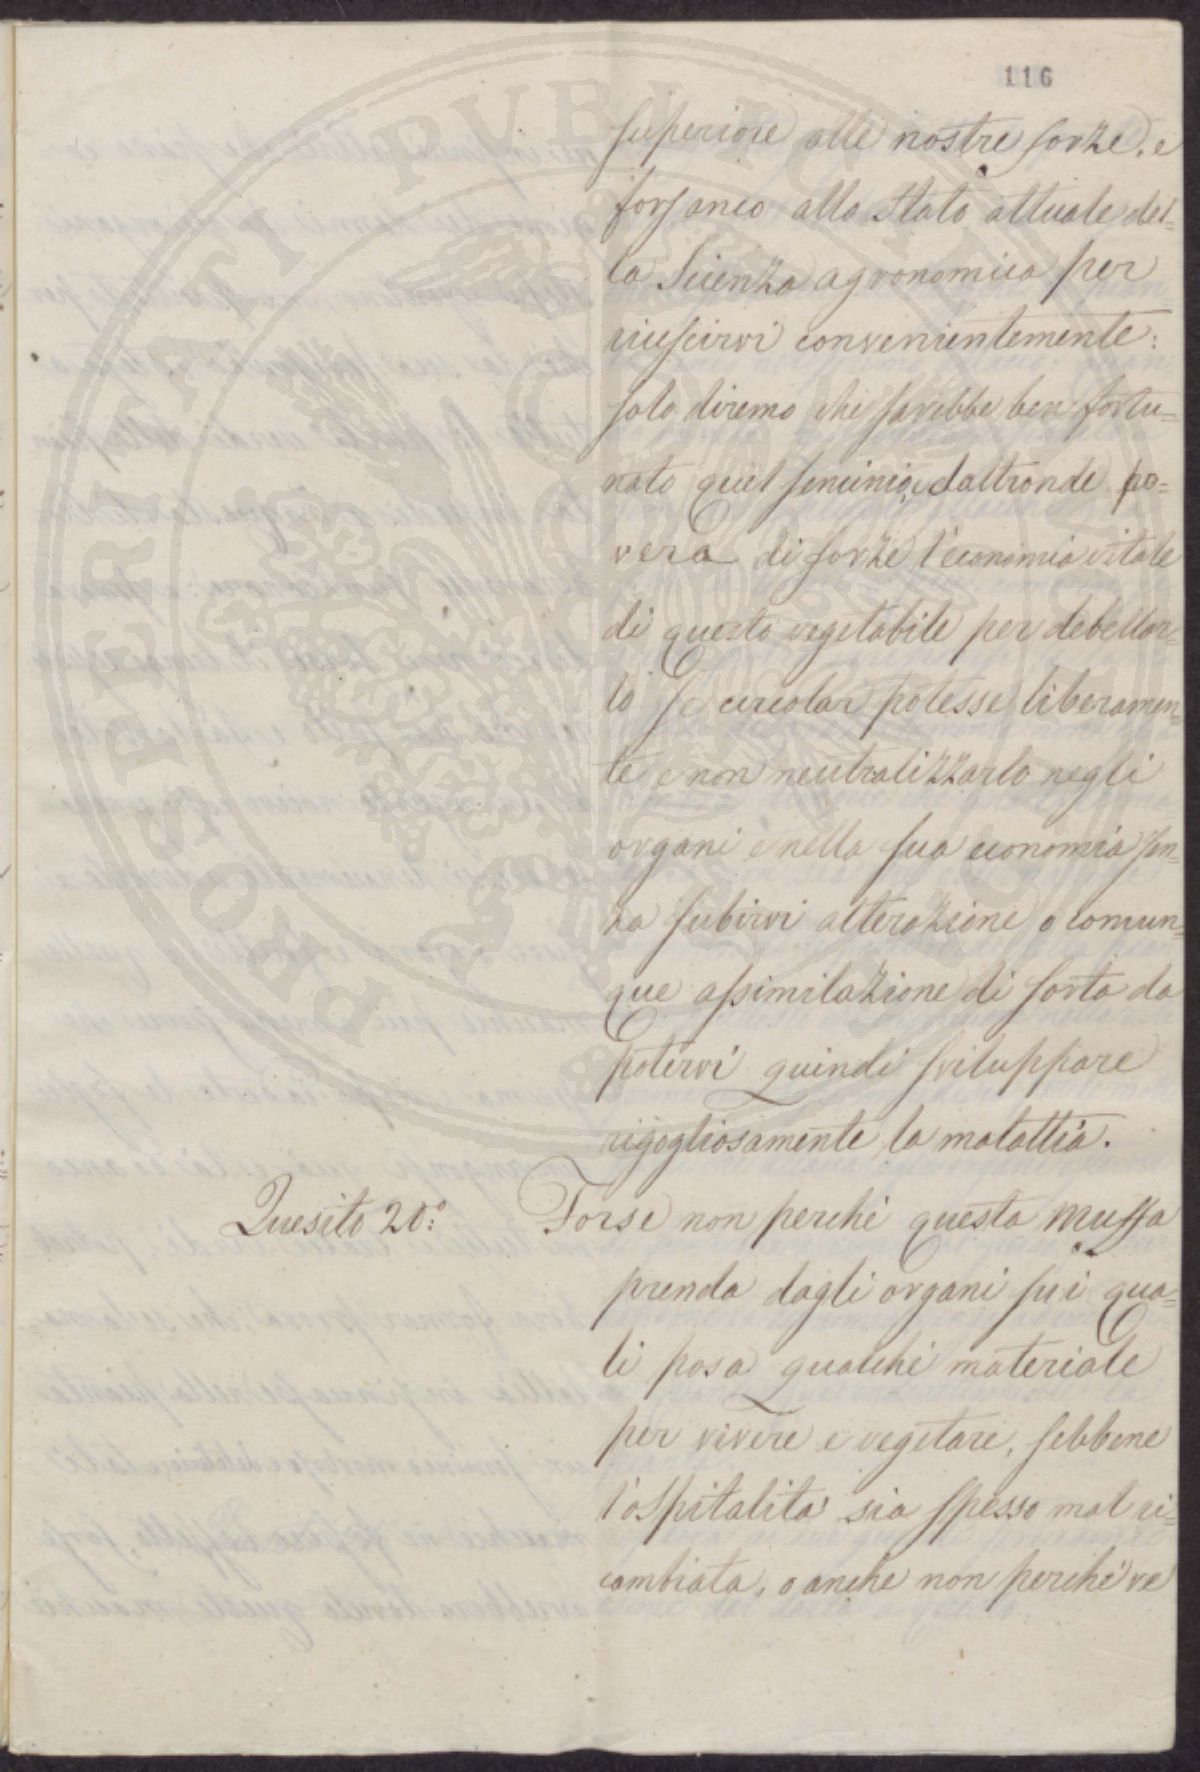 116
superiore alle nostre forze, e
forsanco allo stato attuale del=
la Scienza agronomica per
riuscirvi convenientemente:
solo diremo che sarebbe ben fortu=
nato quel seminio, e daltronde po=
vera di forze l'economia vitale
di questo vegetabile per debellar=
lo se circolar potesse liberamen=
te e non neutralizzarlo negli
organi e nella sua economia sen=
za subirvi alterazione o comun=
que assimilazione di sorta da
potervi quindi sviluppare
rigogliosamente la malattia.
Quesito 20.° Forse non perchè questa muffa
prenda dagli organi sui qua=
li posa qualche materiale
per vivere e vegetare, sebbene
l'ospitalità sia spesso mal ri=
cambiata, o anche non perchè ve
PROSPERITATI PUBLICAE